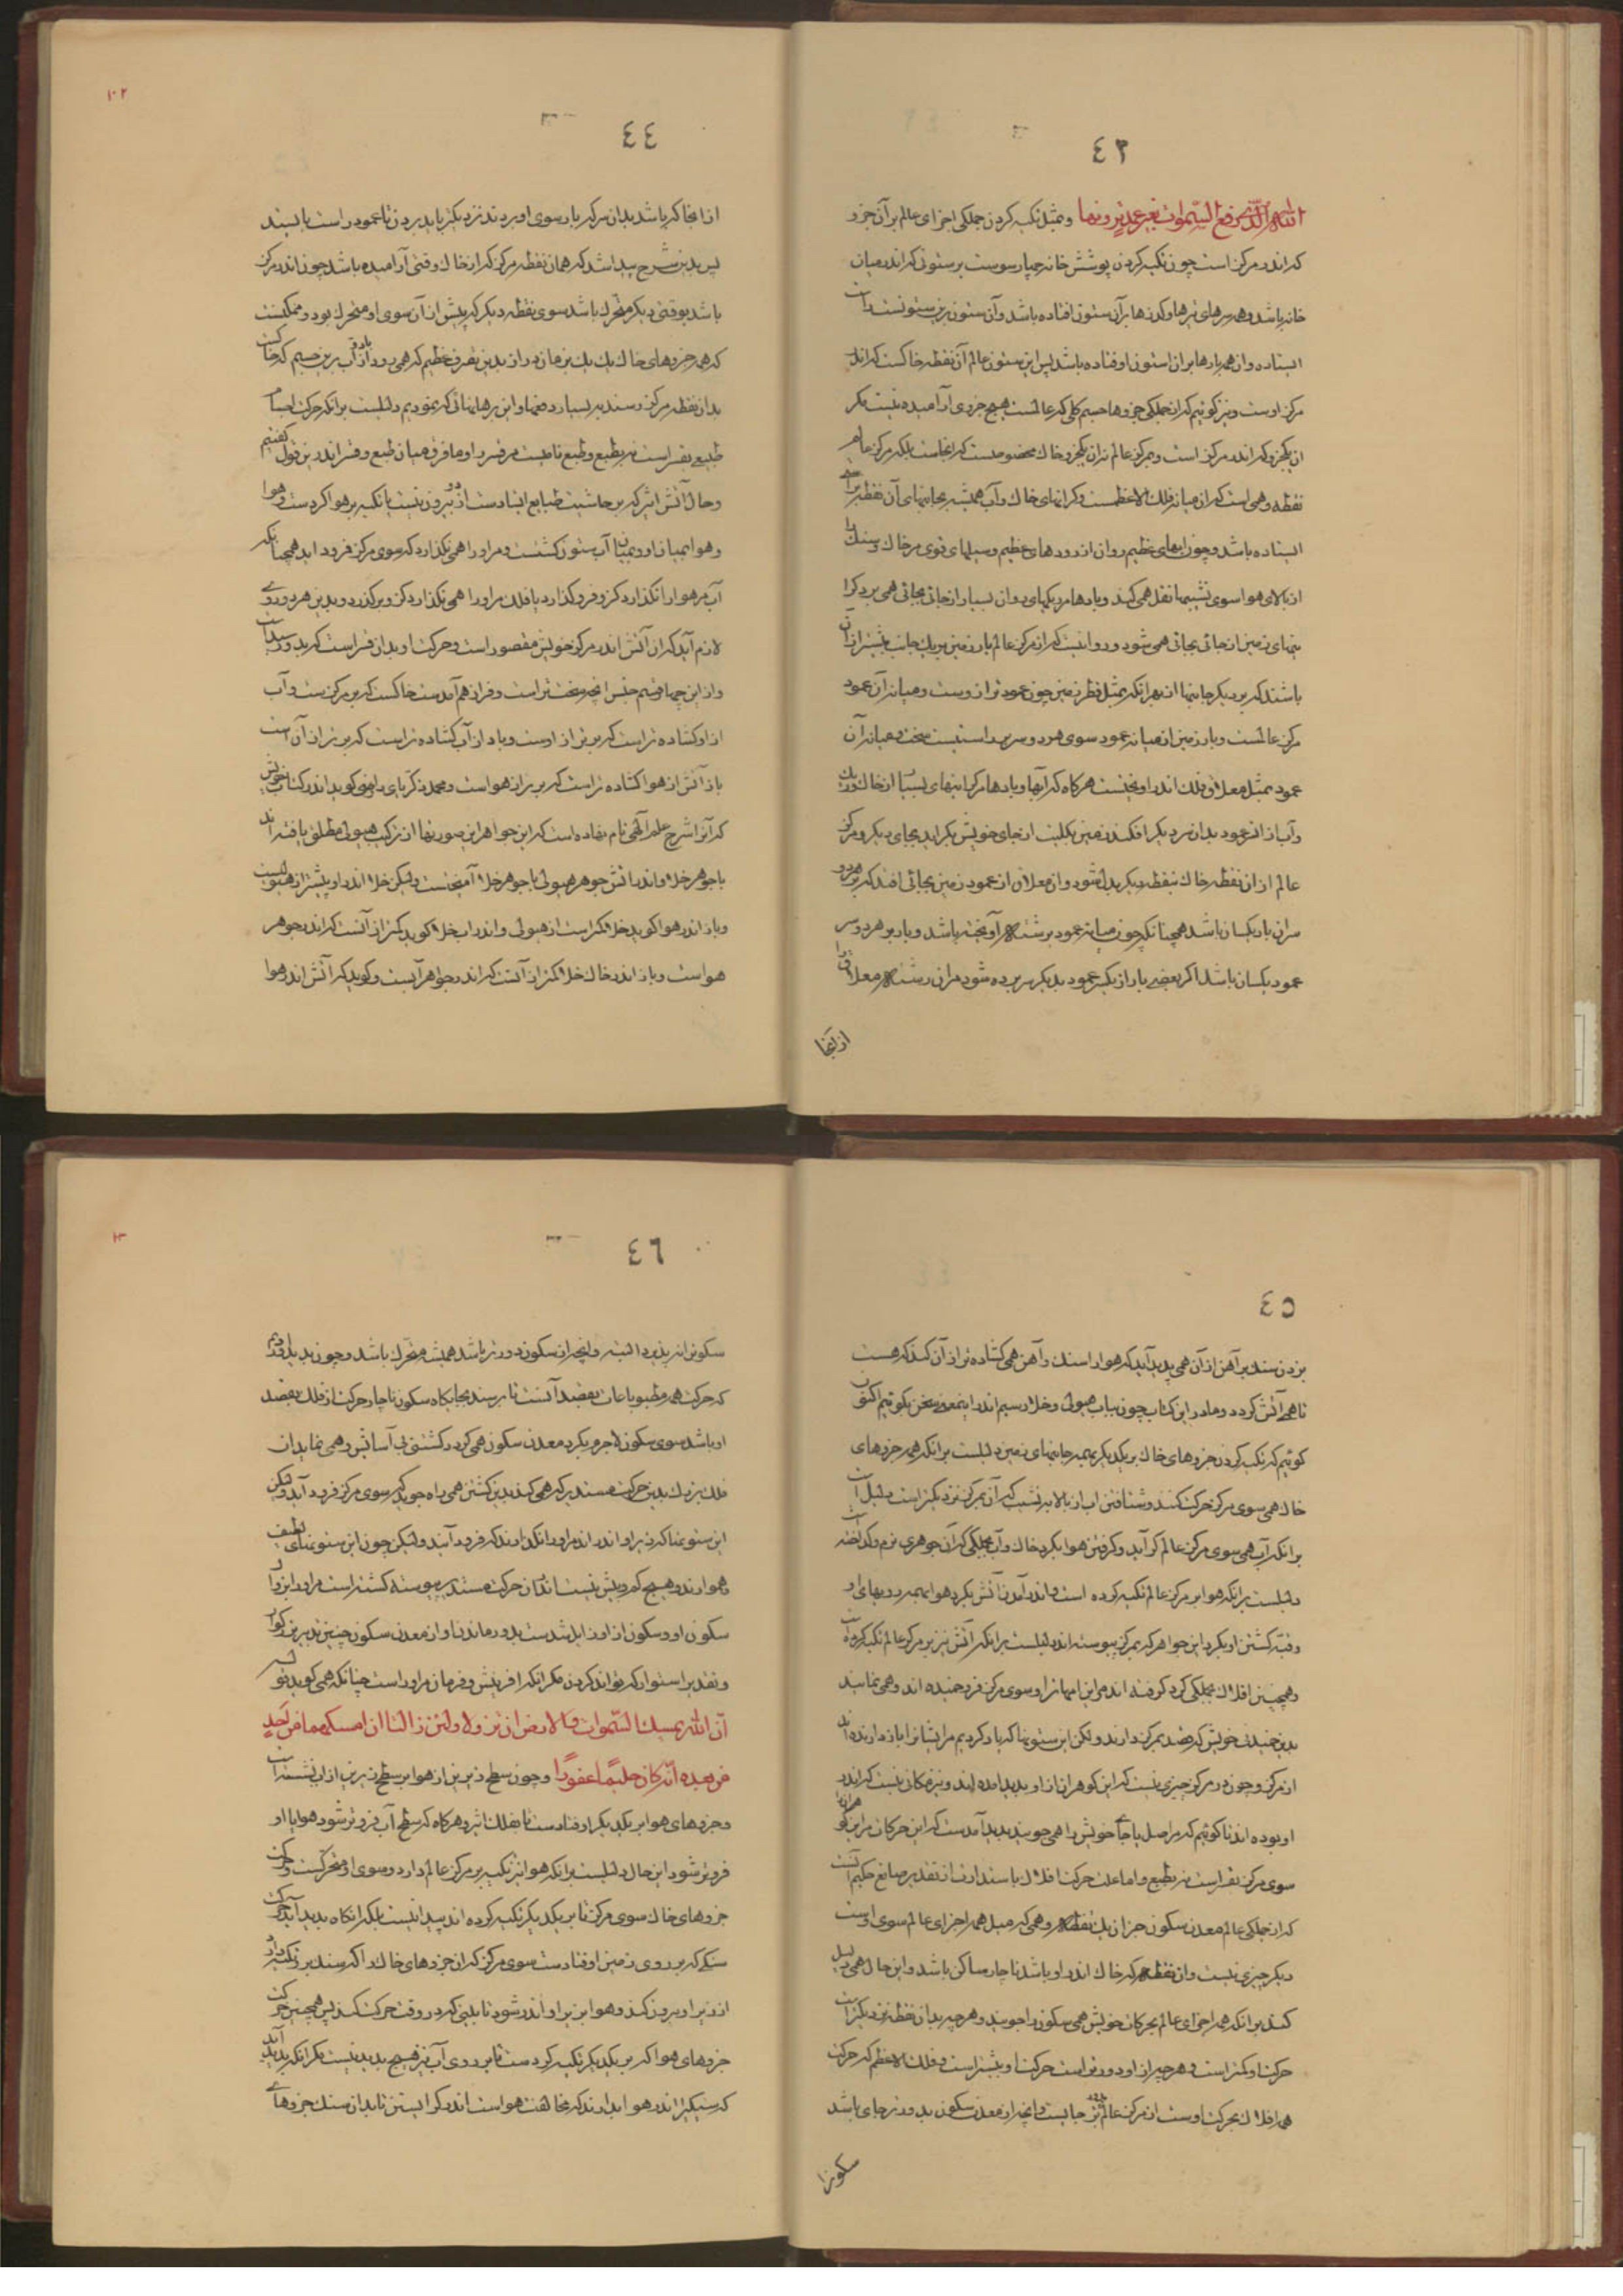 ٤٣
الله الذی رفع السموات بغیر عمد ترونها و مثل تکیه کردن جملکی اجزای عالم بر آن جزو
که اندر مرکز است چون تکیه کردن پوشش خانه چهار سوست بر ستونی که اندر میان
خانه باشد و همه سرهای تیرها و کدنها بر آن ستون افتاده باشد و آن ستون بزیر ستونست راست
ایستاده و آن همه بارها بر آن استون اوفتاده باشد پس این ستون عالم آن نقطه خاکست که اندر
مرکز اوست و نیز کوئیم که از جملکی جزوها جسم کلی که عالمست هیچ جزوی آرامیده نیست مکر
آن یکجزو که اندر مرکز است و مرکز عالم نه آن یکجزو خاک مخصوصست که آنجاست بلکه مرکز عالم
نقطه وهمی است که از میانه فلک الاعظمست و کرانهای خاک و آب همیشه بجانبهای آن نقطه براستی
ایستاده باشد و چون آبهای عظیم روان اندر رودهای عظیم و سیلهای قوی مر خاک و سنک را
از بالای هوا سوی نشیبها نقل همی کند و بادها مر ریکهای روان بسیار از جائی بجائی همی برد کرا
نیهای زمین از جائی بجائی همی شود و روا نیست که از مرکز عالم بار زمین بر یک جانب بیشتر از آن
باشد که بر دیکر جانبها از بهر آنکه بمثل قطر زمین چون عمود ترازوست و میانه آن عمود
مرکز عالمست و بار زمین از میانه عمود سوی هر دو سر براستیست سخت و میانه آن
عمود بمثل معلاق فلک اندر آویخته است هرکاه که آبها و بادها مر کرانیهای بسیار از خاک و ریک
و آب از این سر عمود بدان سر دیکر افکند زمین بکلیت از جای خویش بکراید بجای دیکر و مرکز
عالم از آن نقطه خاک بنقطه دیکر بدل شود و آن معلاق از عمود زمین بجائی افتد که بر هر دو
سر آن بار یکسان باشد همچنانکه چون میانه عمود بر شته آویخته باشد و بار بر هر دو سر
عمود یکسان باشد اکر بعضی بار از یکسر عمود بدیکر سر برده شود مر آن رشته معلاق را
از آنجا
٤٤
از آنجا که باشد بدان سر که بار سوی او بردند نزدیکتر باید بردن تا عمود راست بایستد
پس بدین شرح پیدا شد که همان نقطه مرکز که از خاک وقتی آرامیده باشد چون اندر مرکز
باشد بوقتی دیکر متحرک باشد سوی نقطه دیکر که پیش از آن سوی او متحرک بود و ممکنست
که همه جزوهای خاک یک یک بزمان دراز بدین تصرف عظیم که همی رود از آب و باد بر این جسم که خاکست
بدان نقطه مرکز رسند بر بسیار دفعها و این برهانهائی که نمودیم دلیلست بر آنکه حرکت اجسام
طبیعی بقسر است نه بطبع و طبع نامیست مر قسر را و ما فرق میان طبع و قسر اندر این قول کفتیم
و حال آتش اثیر که بر حاشیت طبایع ایستادست از دو بیرون نیست یا تکیه بر هوا کردست و هوا
و هوا بمیان او و بمیان آب ستون کشتست و مر او را همی نکذارد که سوی مرکز فرود آید همچنانکه
آب مر هوا را نکذارد کز و فرو کذارد یا فلک مر او را همی نکذارد کز و برکذرد و بدین هر دو روی
لازم آید که آن آتش اندر مرکز خویش مقصور است و حرکت او بدان قسر است که بدو رسیدست
و از این چهار قسم جنس آنچه سخت‌تر است و فراز هم آمدست خاکست که بر مرکزست و آب
از او کشاده‌تر است که برتر از اوست و باد از آب کشاده‌تر است که برتر از آن است
باز آتش از هوا کشاده‌تر است که برتر از هواست و محمد زکریای رازی کوید اندر کتاب خویش
که آنرا شرح علم الهی نام نهاده است که این جواهر این صورتها از ترکیب هیولی مطلق یافته اند
با جوهر خلا و اندر آتش جوهر هیولی با جوهر خلا آمیخته است ولیکن خلا اندر او بیشتر از هیولیست
و باز اندر هوا کوید خلا کمتر است از هیولی و اندر آب خلا کوید کمتر از آنست که اندر جوهر
هواست و باز اندر خاک خلا کمتر از آنست که اندر جواهر آبست و کوید که آتش اندر هوا
٤٥
بزدن سنک بر آهن از آن همی پدید آید که هوا را سنک و آهن همی کشاده‌تر از آن کند که هست
تا همی آتش کردد و ما در این کتاب چون بباب هیولی و خلا رسیم اندر این معنی سخن بکوئیم اکنون
کوئیم که تکیه کردن جزوهای خاک بر یکدیکر بهمه جانبهای زمین دلیلست بر آنکه همه جزوهای
خاک همی سوی مرکز حرکت کنند و شتافتن آب از بالا بر نشیب که آن بمرکز نزدیکتر است دلیل است
بر آنکه آب همی سوی مرکز عالم کر آید و کرفتن هوا بکرد خاک و آب بجملکی که آن جوهری نرم و کداخته است
دلیلست بر آنکه هوا بر مرکز عالم تکیه کرده است و اندر آمدن آتش بکرد هوا بهمه رویهای او
و فتنه کشتن او بکرد این جواهر که بمرکز پیوسته اند دلیلست بر آنکه آتش نیز بر مرکز عالم تکیه کرده است
و همچنین افلاک بجملکی کرد کرفته اند مر این امهات را و سوی مرکز فرو خمیده اند و همی نمایند
بدین خمیدن خویش که قصد بمرکز دارند ولکن این ستونها که یاد کردیم مر ایشانرا باز دارنده اند
از مرکز و چون در مرکز چیزی نیست که این کوهران از او پدید آمده اند و نیز مکان نیست که اندر
او بوده اند تا کوئیم که مر اصل یا جای خویش را همی جویند پدید آمدست که این حرکات مر این کوهرانرا
سوی مرکز بقسر است نه بطبع و اما علت حرکت افلاک باستدارت از تقدیر صانع حکیم آنست
که از جملکی عالم معدن سکون جز آن یک نقطه وهمی که میل همه اجزای عالم سوی اوست
دیکر چیزی نیست و آن نقطه که خاک اندر او باشد ناچار ساکن باشد و این حال همی دلیل
کند بر آنکه همه اجزای عالم بحرکات خویش همی سکون را جویند و هر چه بدان نقطه نزدیکتر است
حرکت او کمتر است و هر چیز از او دورتر است حرکت او بیشتر است و فلک الاعظم که حرکت
همه افلاک بحرکت اوست از مرکز عالم برتر جایست و آنچه از معدن سکون بدورتر جای باشد
سکونرا
٤٦
سکونرا نپذیرد البته و آنچه از سکون دورتر باشد همیشه متحرک باشد و چون پدید آوردیم
که حرکت همه مطبوعات بقصد آنست تا برسند بجایکاه سکون ناچار حرکت از فلک بقصد
او باشد سوی سکون لاجرم بکرد معدن سکون همی کردد کشتنی بی آسایش و همی نماید آن
فلک بزرک بدین حرکت مستدیر که همی کند بدین کشتن همی راه جوید که سوی مرکز فرود آید ولیکن
این ستونها که زیر او اندر اند مر او را نکذارند که فرود آید ولیکن چون این ستونهای لطیف
و هوا رند و هیچ کم و بیش نیست اندر آن حرکت مستدیر پیوسته کشته است مر او را بر در
سکون او و سکون از او زایل شدست بدور ماندن او از معدن سکون چنین تدبیر بزرکوار
و تقدیر استوار که تواند کردن مکر آنکه آفرینش و فرمان مر او راست چنانکه همی کوید قوله
ان الله یمسک السموات والارض ان تزولا ولئن زالتا ان امسکهما من احد
من بعده انه کان حلیما غفورا و چون سطح زیرین از هوا بر سطح زبرین از آب نشسته است
و جزوهای هوا بر یکدیکر اوفتادست تا بفلک اثیر و هرکاه که سطح آب فروتر شود هوا با او
فروتر شود این حال دلیلست بر آنکه هوا نیز تکیه بر مرکز عالم دارد و سوی او متحرکست و حرکت
جزوهای خاک سوی مرکز تا بر یکدیکر تکیه کرده اند پیدا نیست بلکه آنکاه پدید آید حرکت
سنکی که بر روی زمین اوفتادست سوی مرکز که آن جزوهای خاک را که سنک بر تکیه دارد
از زیر او بیرون کند و هوا بزیر او اندر شود تا بینی که در وقت حرکت کند پس همچنین حرکت
جزوهای هوا که بر یکدیکر تکیه کردست تا بر روی آب نیز هیچ پدید نیست مکر آنکه پدید آید
که سنکی را اندر هوا براندازند که مخالفت هواست اندر کرایستن تا بدان سنک جزوهای